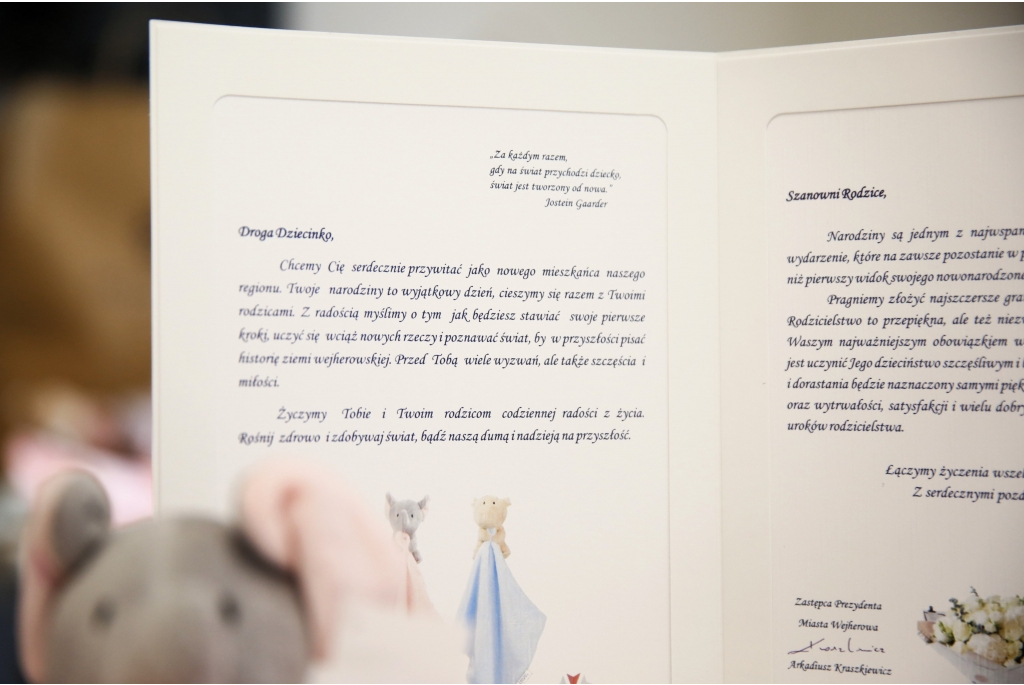 „Za każdym razem,
gdy na świat przychodzi dziecko,
świat jest tworzony od nowa."
Jostein Gaarder
Droga Dziecinko,
Chcemy Cię serdecznie przywitać jako nowego mieszkańca naszego
regionu. Twoje narodziny to wyjątkowy dzień, cieszymy się razem z Twoimi
rodzicami. Z radością myślimy o tym jak będziesz stawiać swoje pierwsze
kroki, uczyć się wciąż nowych rzeczy i poznawać świat, by w przyszłości pisać
historię ziemi wejherowskiej. Przed Tobą wiele wyzwań, ale także szczęścia i
miłości.
Życzymy Tobie i Twoim rodzicom codziennej radości z życia.
Rośnij zdrowo i zdobywaj świat, bądź naszą dumą i nadzieją na przyszłość.
Szanowni Rodzice,
Narodziny są jednym z
wydarzenie, które na zawsze pozostanie w
niż pierwszy widok swojego
Pragniemy złożyć najszczersze
Rodzicielstwo to przepiękna, ale też
Waszym najważniejszym obowiązkiem
jest uczynić Jego dzieciństwo szczęśliwym i
i dorastania będzie naznaczony samymi
oraz wytrwałości, satysfakcji i wielu
uroków rodzicielstwa.
Łączymy życzenia
Z serdecznymi
Zastępca Prezydenta
Miasta Wejherowa
Arkadiusz Kraszkiewicz